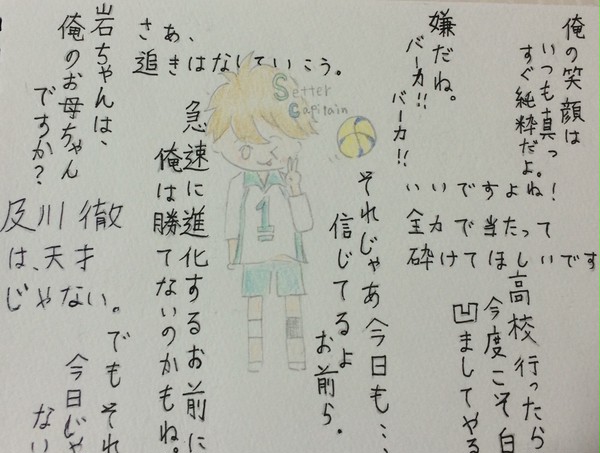 俺の笑顔は
いつも真っ
すぐ純粋だよ。
嫌だね。
バーカ!!
バーカ!!
いいですよね!
全力で当たって
砕けてほしいです
高校行ったら
今度こそ白
凹ましてやる
さあ、
追きはなしていこう。
Setter
Capitain
1
それじゃあ今日も…
信じてるよ
お前ら.
急速に進化するお前に
俺は勝てないのかもね。
岩ちゃんは、
俺のお母ちゃん
ですか?
及川徹
は、天才
じゃない。
でもそれ
今日じゃ
ない